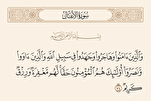 سورة الأنفال
والذين ءامنوا وهاجروا وجهدوا في سبيل الله والذين ءاووا
ونصروا أولئك هم المؤمنون حقا لهم مغفرة ورزق
كريم